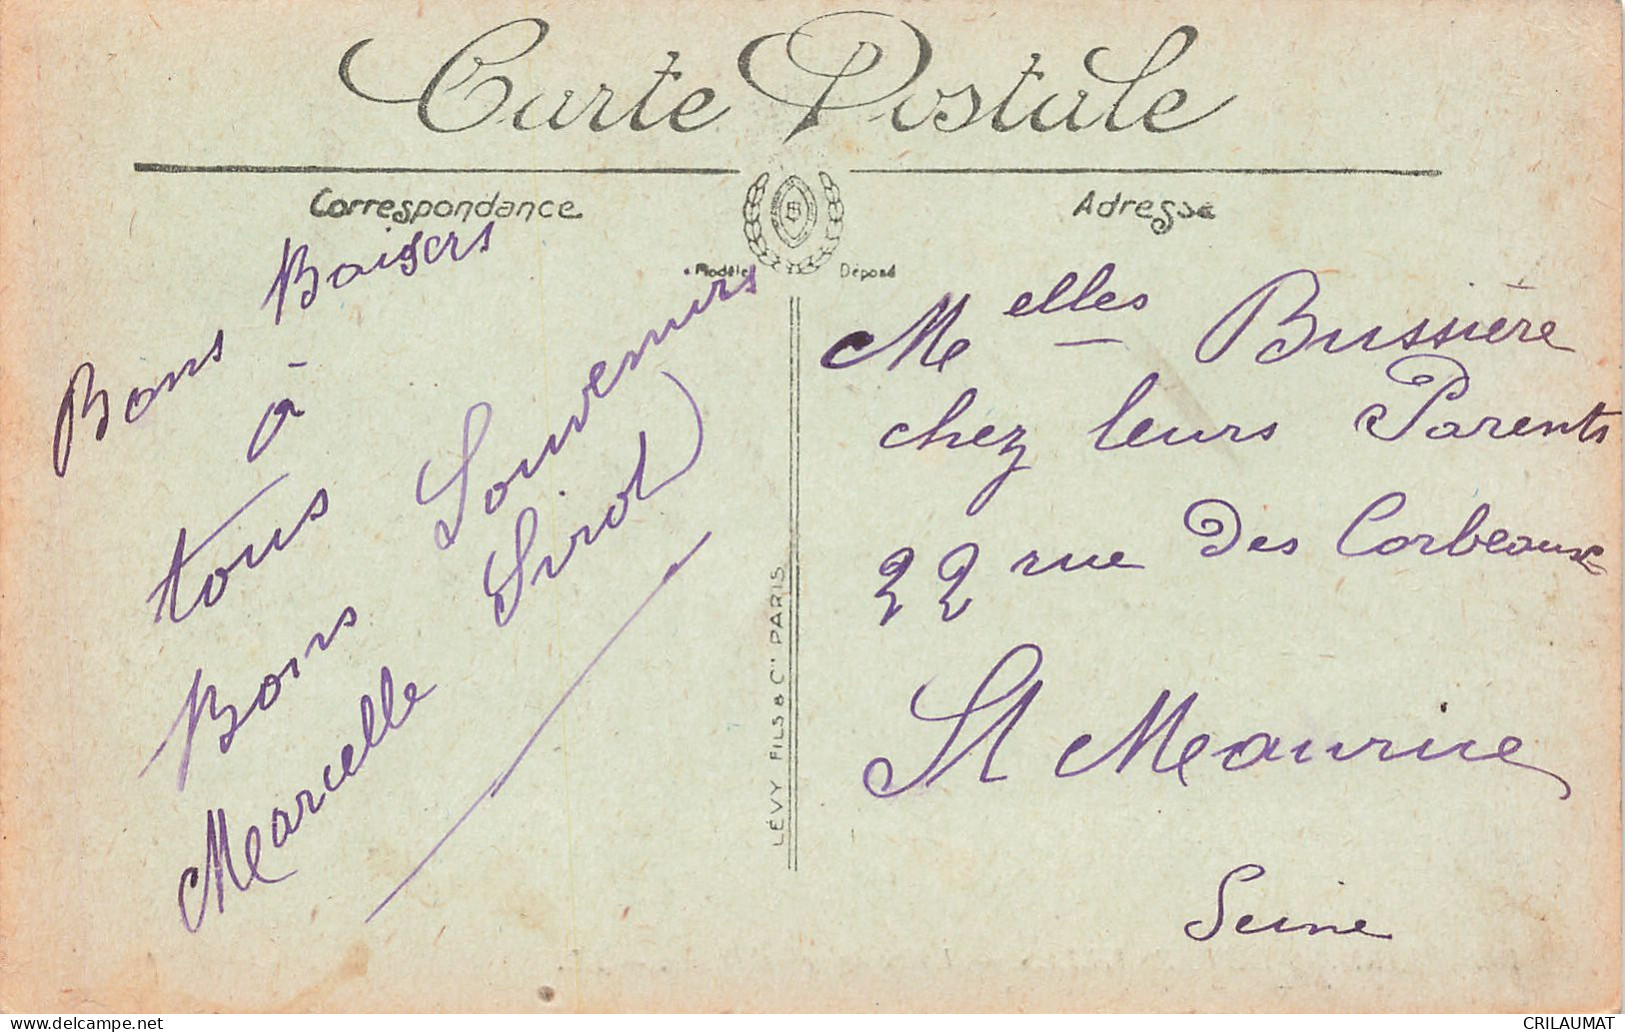 Carte Postale
Correspondance
Adresse
Modèle Déposé
Bons Baisers
à
tous
Bons Souvenirs
Marcelle Sirot
LÉVY FILS & Cie PARIS
Melles Bussière
chez leurs Parents
22 rue Des Corbeaux
St Maurice
Seine
CRILAUMAT